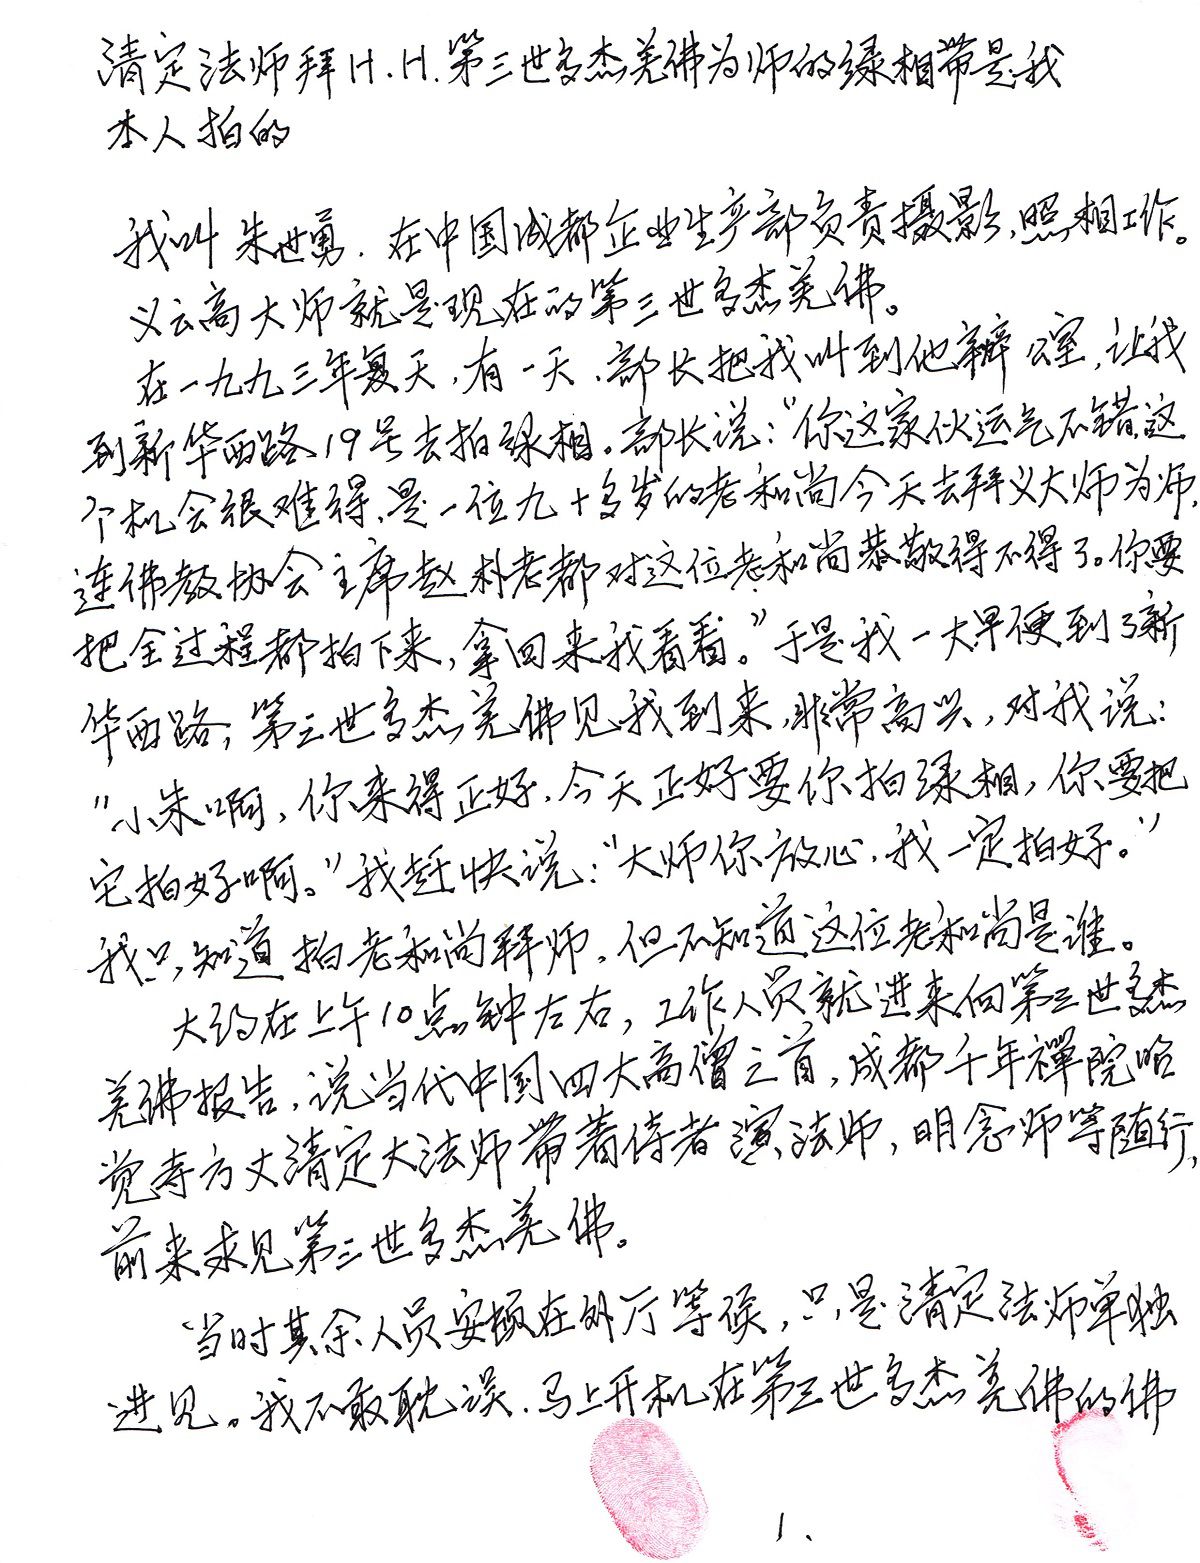 清定法师拜H.H.第三世多杰羌佛为师的録相带是我
本人拍的
我叫朱世勇.在中国成都企业生产部负责摄影,照相工作。
义云高大师就是现在的第三世多杰羌佛。
在一九九三年夏天,有一天.部长把我叫到他辦公室,让我
到新华西路19号去拍録相。部长说:“你这家伙运气不错,这
个机会很难得,是一位九十多岁的老和尚今天去拜义大师为师,
连佛教协会主席赵朴老都对这位老和尚恭敬得不得了。你要
把全过程都拍下来,拿回来我看看。”于是我一大早便到了新
华西路,第三世多杰羌佛见我到来,非常高兴,对我说:
“小朱啊,你来得正好.今天正好要你拍録相,你要把
它拍好啊。”我赶快说:“大师你放心.我一定拍好。”
我只知道拍老和尚拜师,但不知道这位老和尚是谁。
大约在上午10点钟左右,工作人员就进来向第三世多杰
羌佛报告,说当代中国四大高僧之首,成都千年禪院昭
觉寺方丈清定大法师带着侍者演法师,明念师等随行,
前来求见第三世多杰羌佛。
当时其余人员安顿在外厅等候,只是清定法师单独
进见。我不敢耽误.马上开机在第三世多杰羌佛的佛
1.